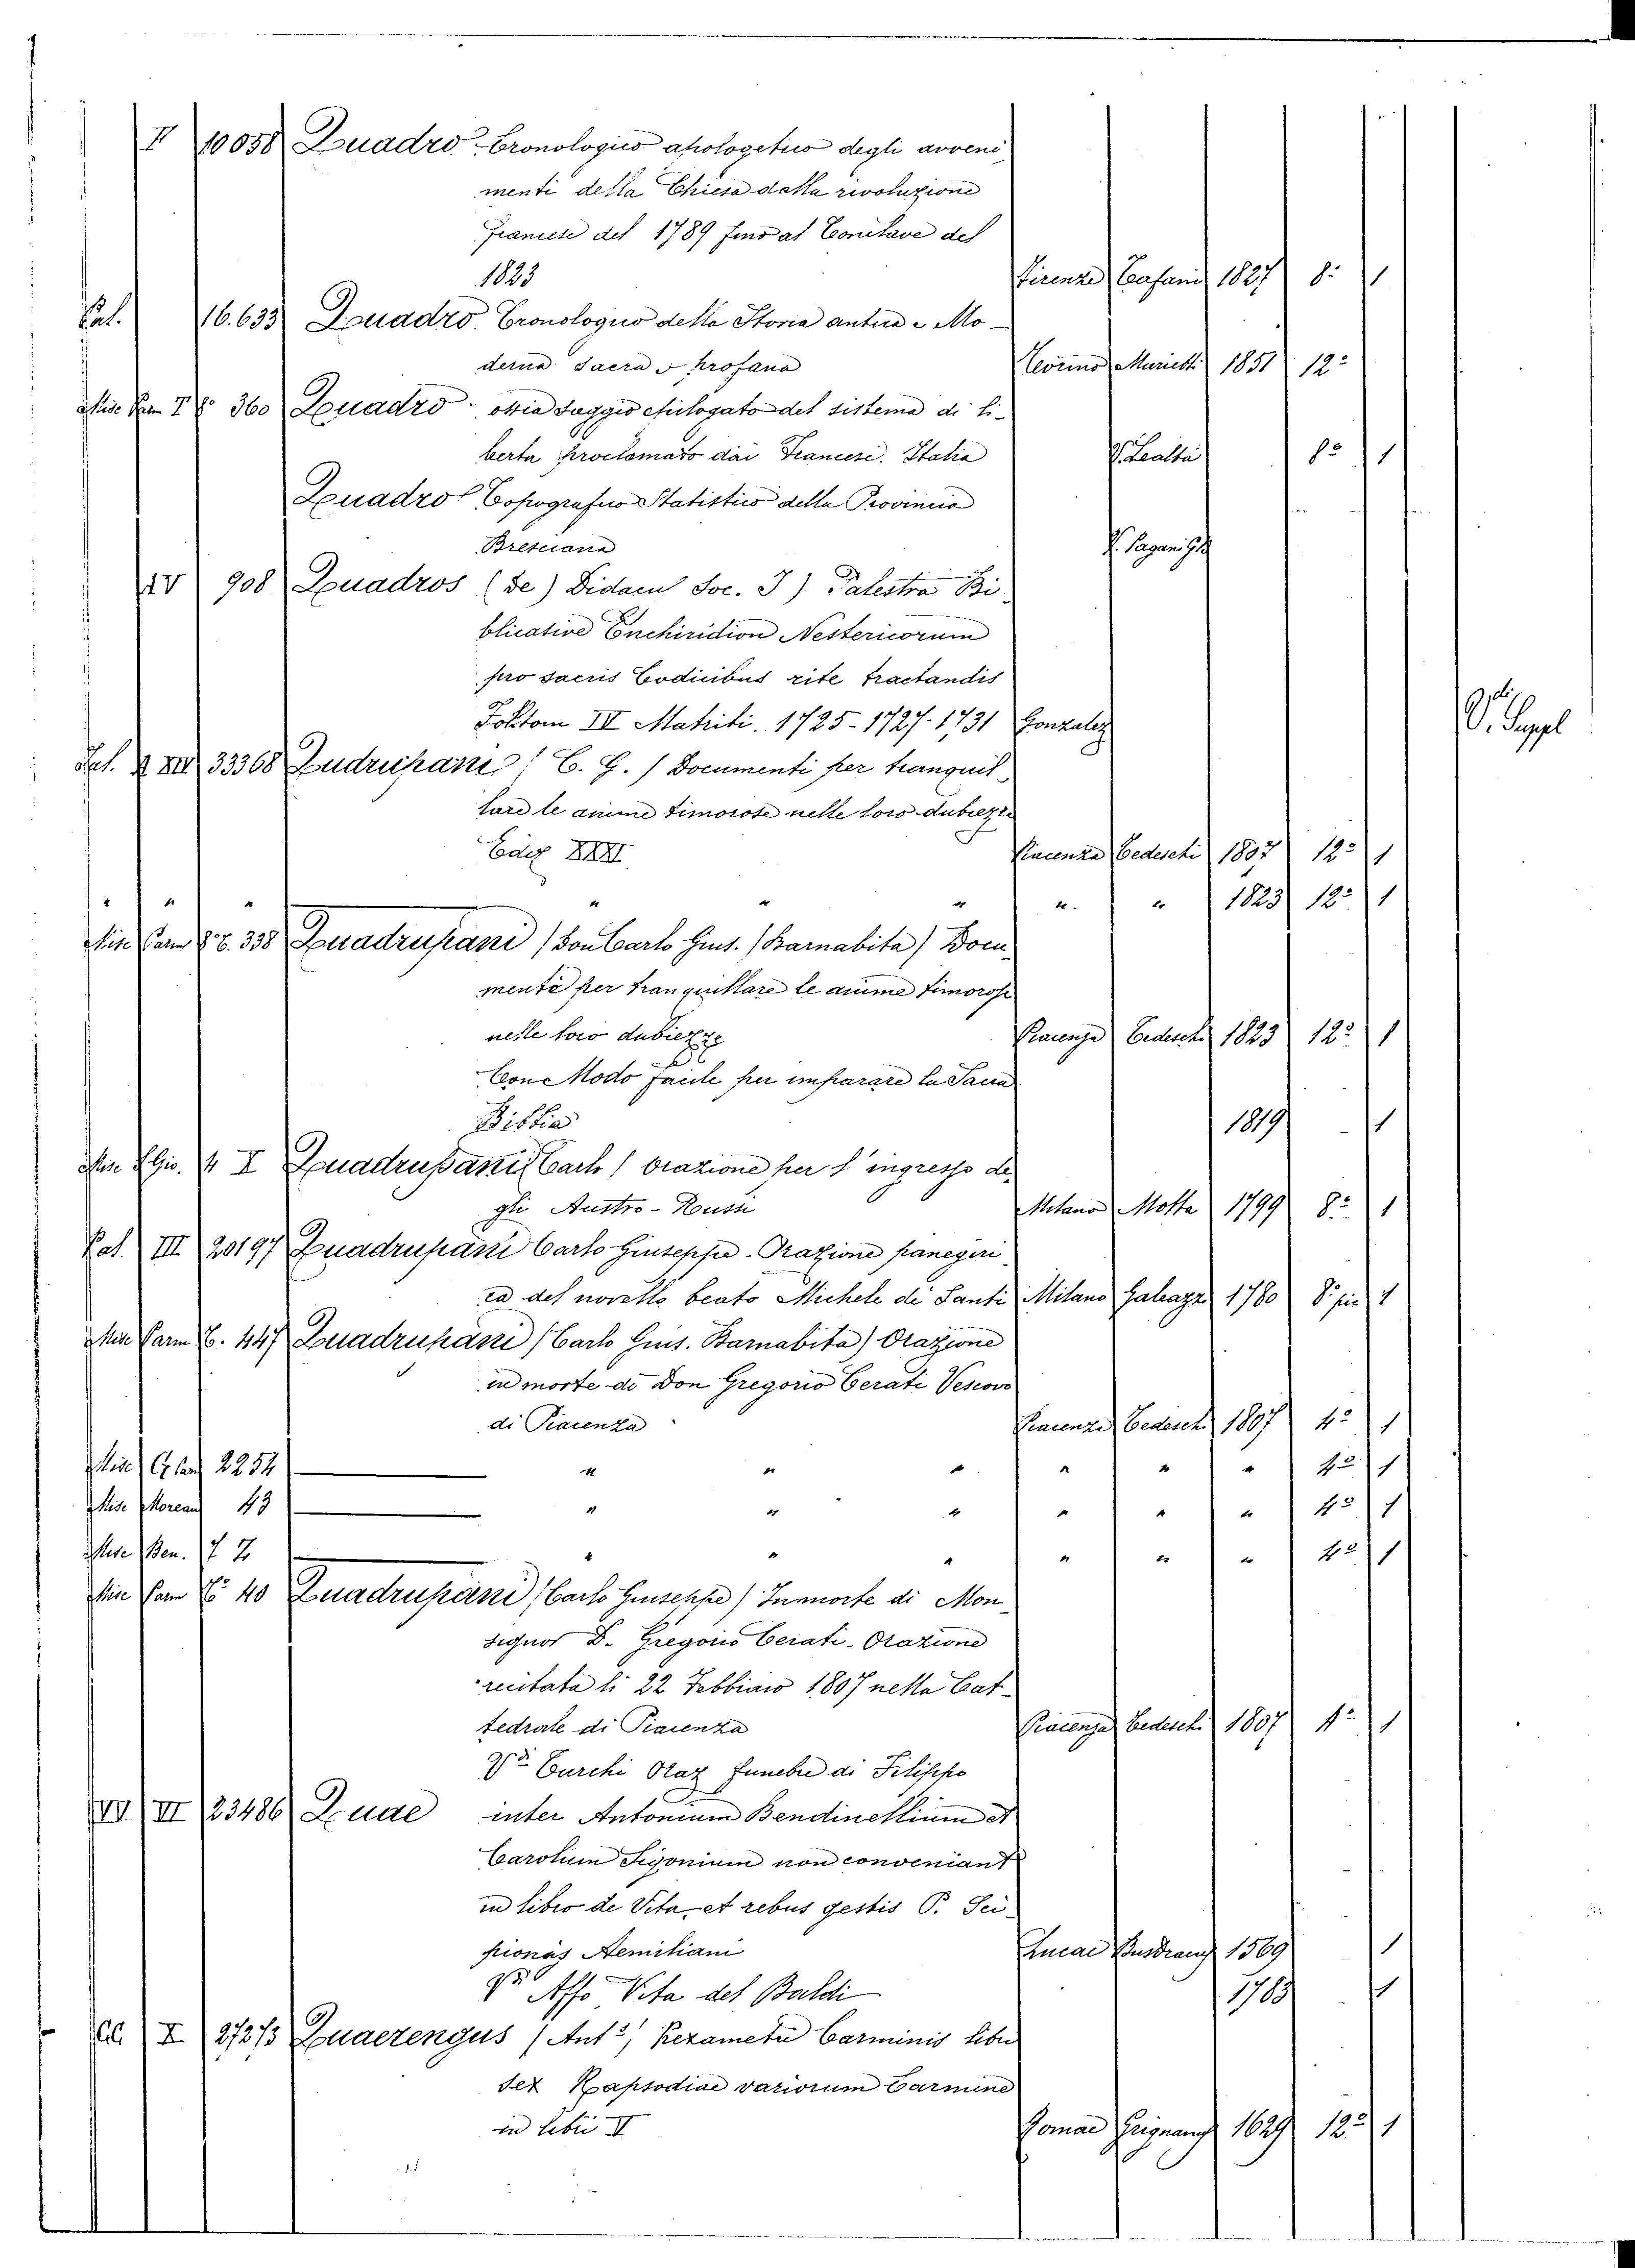 II 10058 Quadro Cronologico apologetico degli avveni
menti della Chiesa dalla rivoluzione
Francese del 1789 fino al Conclave del
1823 Firenze 1827 8° 1
Pal. 16.633 Quadro Cronologico della Storia antica e Mo-
derna Sacra e profana Torino Marietti 1851 12°
Misc Parm 360 Quadro ossia Saggio epilogato del sistema di li-
berta proclamato dai Francesi. Italia V. Lealtà 8° 1
Quadro Topografico Statistico della Provincia
Bresciana V. Pagani
IV 908 Quadros (de) Didaci Soc. J) Palestra Bi
blicative Enchiridion Nestericorum
pro sacris Codicibus rite tractandis
Matriti. 1725-1727-1731 Gonzalez
V. Suppl
Pal. XIII 33368 Qudrupani (C. G.) Documenti per tranquil
lare le anime timorose nelle loro dubiezze
Ediz XXXI Piacenza Tedeschi 1807 12° 1
" " " " " " " " 1823 12° 1
Misc Parm 8° 338 Quadrupani (Don Carlo Gius. (Barnabita) Docu
menti per tranquillare le anime timorose
nelle loro dubiezze Piacenza Tedeschi 1823 12° 1
Con Modo facile per imparare la Sacra
Bibbia 1819 1
Misc Gio. 4 I Quadrupani (Carlo) Orazione per l'ingresso de
gli Austro-Russi Milano Motta 1799 8° 1
Pal. III 20197 Quadrupani Carlo Giuseppe. Orazione panegiri
ca del novello beato Michele di Santi Milano Galeazzi 1780 8° 1
Misc Parm 447 Quadrupani (Carlo Gius. Barnabita) Orazione
in morte di Don Gregorio Cerati Vescovo
di Piacenza Piacenza Tedeschi 1807 4° 1
Misc 2254 " " " " " " 4° 1
Misc Moreau 43 " " " " " " 4° 1
Misc Ben. 7 " " " " " " 4° 1
Misc Parm 40 Quadrupani (Carlo Giuseppe) In morte di Mon
signor D. Gregorio Cerati-Orazione
recitata li 22 Febbraio 1807 nella Cat
tedrale di Piacenza Piacenza Tedeschi 1807 4° 1
Vd Turchi Oraz funebre di Filippo
VI 23486 Quae inter Antonium Bendinellium et
Carolum Sigonium non conveniant
in libro de Vita, et rebus gestis P. Sci
pionis Aemiliani Lucae Busdrang 1569 1
Vd Affo Vita del Baldi 1783 1
I 27213 Quaerengus (Ant°) Hexametri Carminis libri
sex Rapsodiae variorum Carmine
in libri V Romae Grignani 1629 12° 1